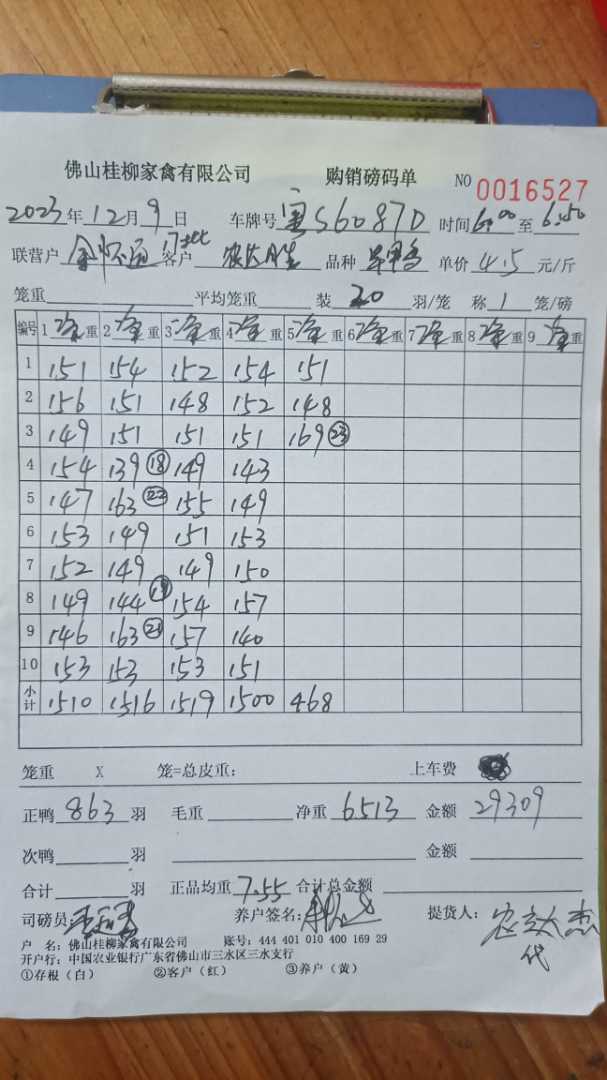 佛山桂柳家禽有限公司 购销磅码单 NO 0016527
2023年12月9日 车牌号 S6087D 时间6:00至6:50
联营户 余怀通 17批 客户 品种 单价 4.5 元/斤
笼重 平均笼重 装 20 羽/笼 称 1 笼/磅
编号 1 净重 2 净重 3 净重 4 净重 5 净重 6 净重 7 净重 8 净重 9 净重
1 151 154 152 154 151
2 156 151 148 152 148
3 149 151 151 151 169 (23)
4 154 139 (18) 149 143
5 147 163 (22) 155 149
6 153 149 151 153
7 152 149 149 150
8 149 144 (19) 154 157
9 146 163 (21) 157 140
10 153 153 153 151
小计 1510 1516 1519 1500 468
笼重 X 笼=总皮重: 上车费
正鸭 863 羽 毛重 净重 6513 金额 29309
次鸭 羽 金额
合计 羽 正品均重 7.55 合计总金额
司磅员: 养户签名: 提货人:
代
户 名: 佛山桂柳家禽有限公司 账号: 444 401 010 400 169 29
开户行: 中国农业银行广东省佛山市三水区三水支行
①存根(白) ②客户(红) ③养户(黄)